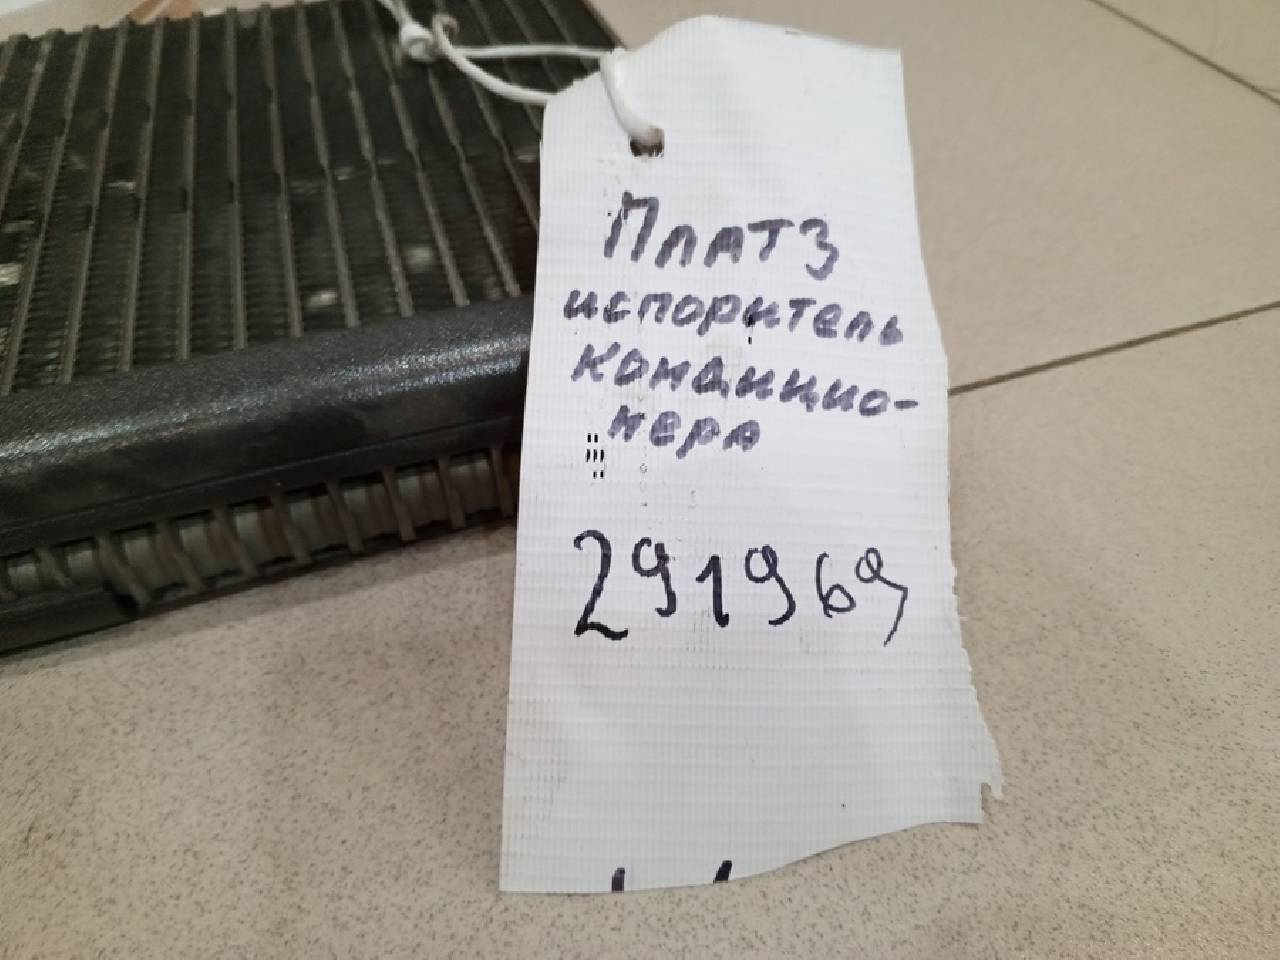 ПЛАТ3
испоритель
кондицио-
нера
291969